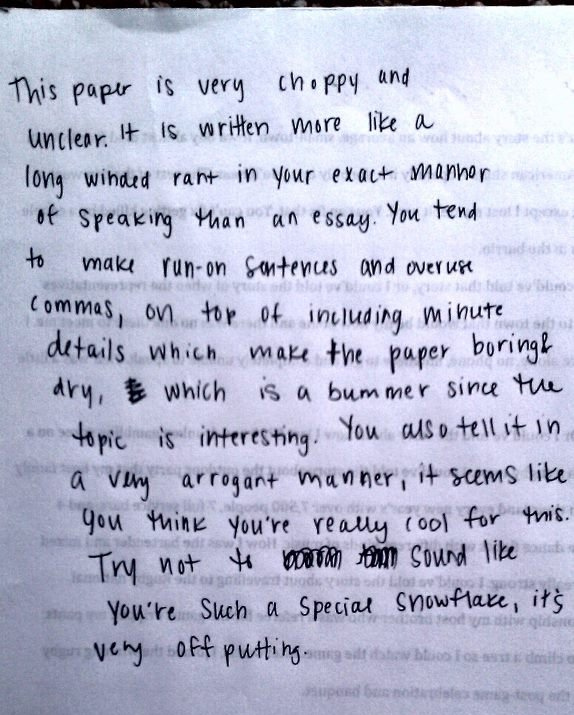 This paper is very choppy and
unclear. It is written more like a
long winded rant in your exact mannor
of speaking than an essay. You tend
to make run-on sentences and overuse
commas, on top of including minute
details which make the paper boring &
dry, which is a bummer since the
topic is interesting. You also tell it in
a very arrogant manner, it seems like
you think you're really cool for this.
Try not to sound like
you're such a special snowflake, it's
very off putting.